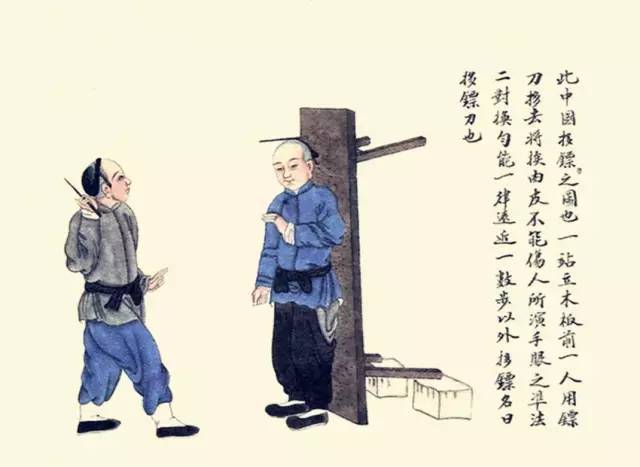 此中国扔鏢之圖也一站立木板前一人用鏢
刀扔去將挨肉皮不能傷人所演手眼之準法
二對換勻能一律遠近一數步以外扔鏢名曰
扔鏢刀也